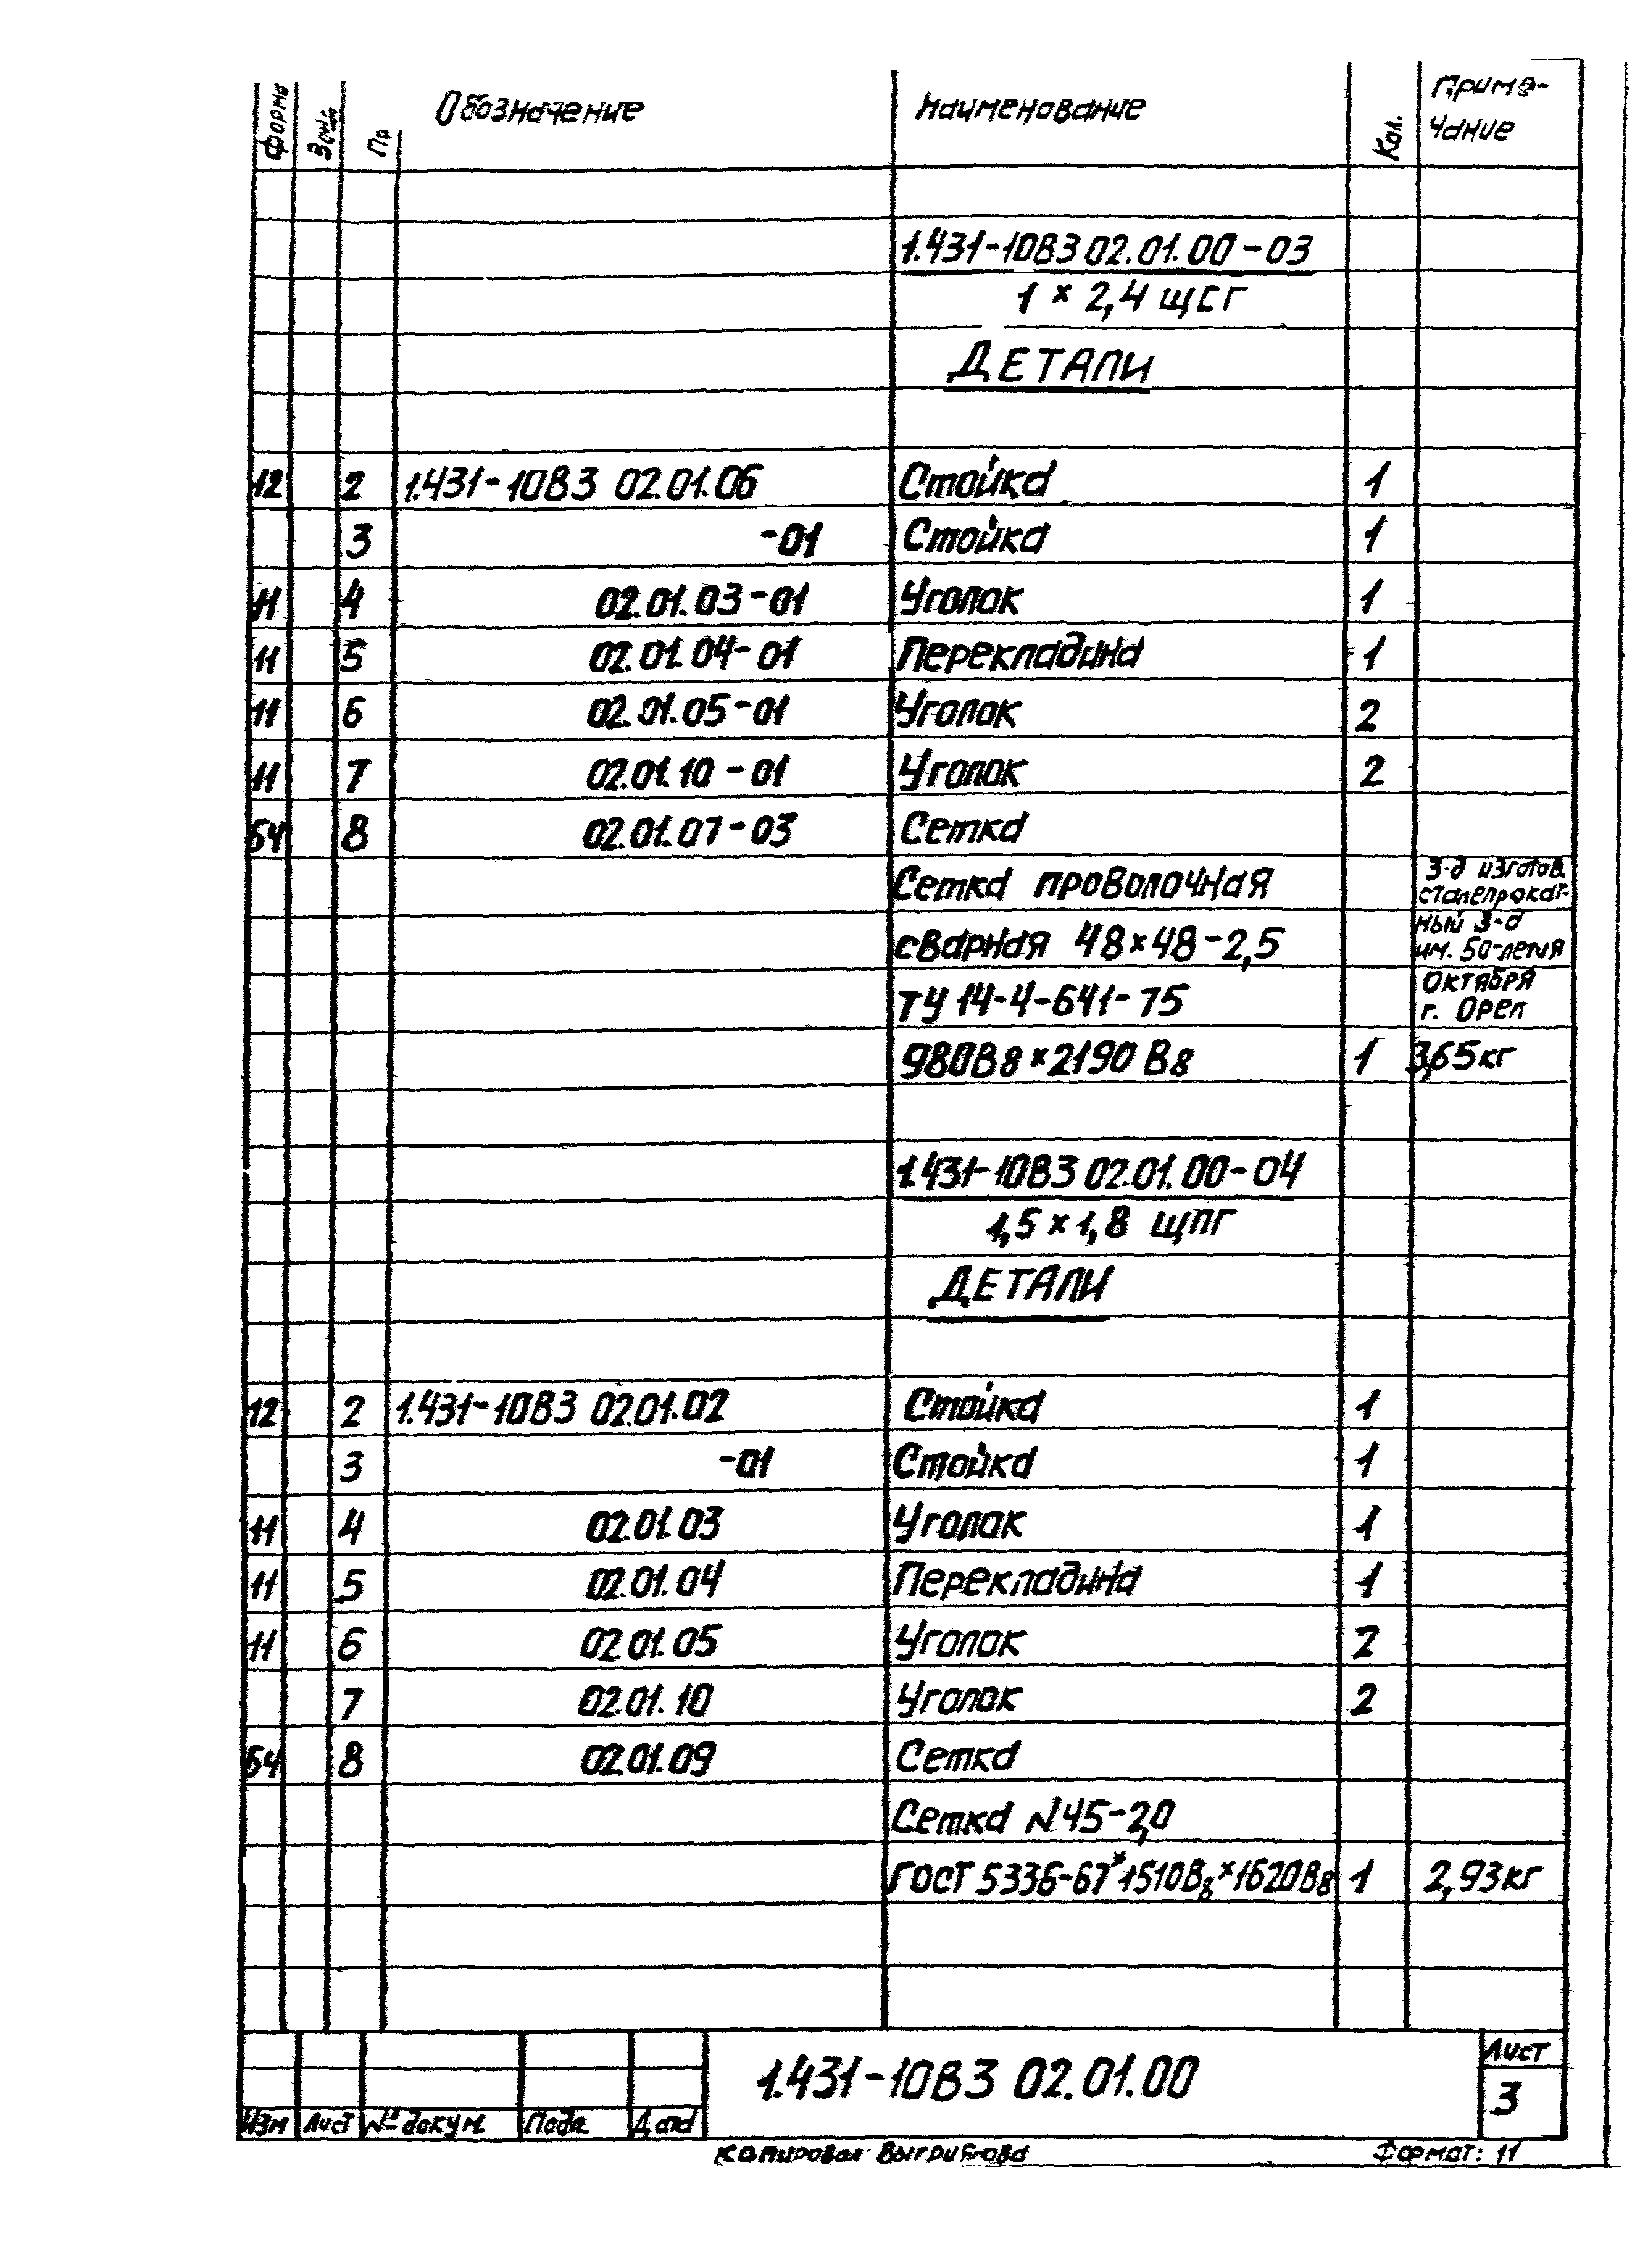 Форма Зона По Обозначение Наименование Кол. Приме-
чание
1.431-10В3 02.01.00-03
1 × 2,4 щсг
ДЕТАЛИ
12 2 1.431-10В3 02.01.06 Стойка 1
3 -01 Стойка 1
11 4 02.01.03-01 Уголок 1
11 5 02.01.04-01 Перекладина 1
11 6 02.01.05-01 Уголок 2
11 7 02.01.10-01 Уголок 2
б4 8 02.01.07-03 Сетка
Сетка проволочная З-д изготов.
сталепрокат-
сварная 48×48-2,5 ный З-д
им. 50-летия
ТУ 14-4-641-75 Октября
г. Орел
980В8×2190В8 1 3,65кг
1.431-10В3 02.01.00-04
1,5 × 1,8 щпг
ДЕТАЛИ
12 2 1.431-10В3 02.01.02 Стойка 1
3 -01 Стойка 1
11 4 02.01.03 Уголок 1
11 5 02.01.04 Перекладина 1
11 6 02.01.05 Уголок 2
7 02.01.10 Уголок 2
б4 8 02.01.09 Сетка
Сетка N45-2,0
ГОСТ 5336-67* 1510В8×1620В8 1 2,93кг
1.431-10В3 02.01.00 Лист
3
Изм Лист № докум. Подп. Дата
Копировал Формат: 11